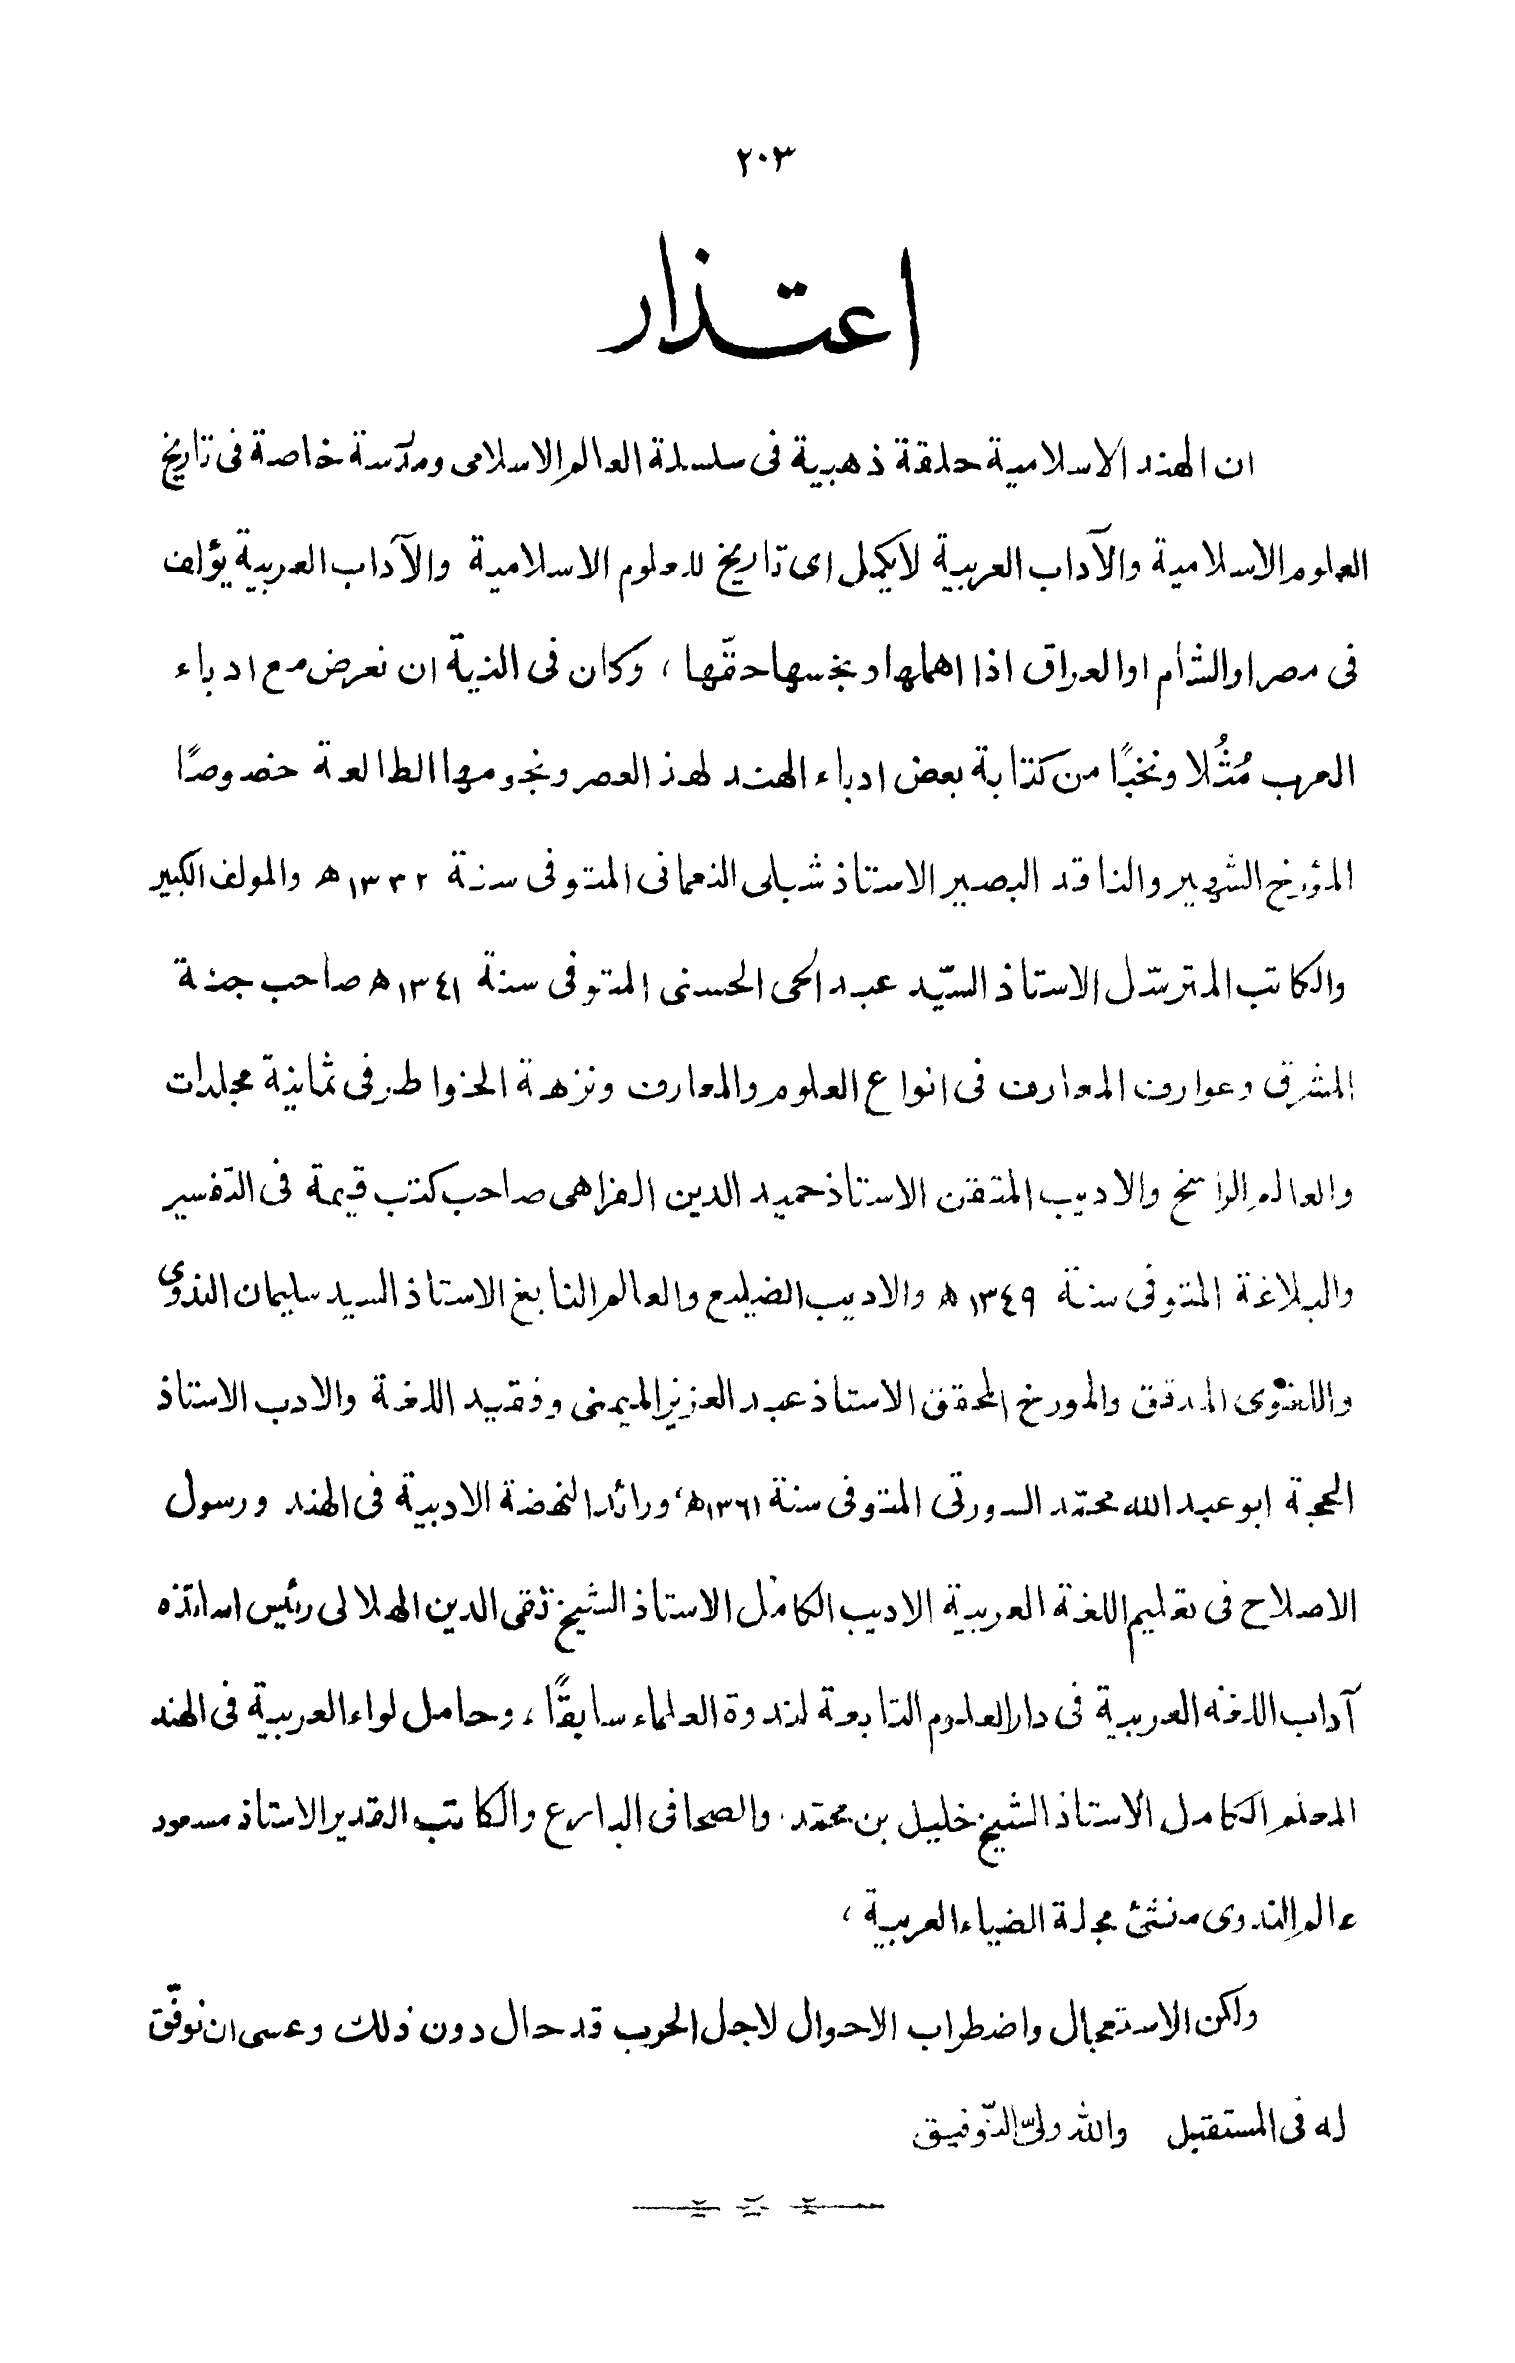 ٢٠٣
اعتذار
ان الهند الاسلامية حلقة ذهبية فى سلسلة العالم الاسلامى ومدرسة خاصة فى تاريخ
العلوم الاسلامية والآداب العربية لايكمل اى تاريخ للعلوم الاسلامية والآداب العربية يؤلف
فى مصر او الشأم او العراق اذا اهملها او بخسها حقّها ، وكان فى النية ان نعرض مع ادباء
العرب مُثُلا ونخبًا من كتابة بعض ادباء الهند لهذ العصر ونجومها الطالعة خصوصًا
المؤرخ الشهير والناقد البصير الاستاذ شبلى النعمانى المتوفى سنة ١٣٣٢ھ والمولف الكبير
والكاتب المترسّل الاستاذ السيّد عبد الحى الحسنى المتوفى سنة ١٣٤١ھ صاحب جنة
المشرق وعوارف المعارف فى انواع العلوم والمعارف ونزهة الخواطر فى ثمانية مجلدات
والعالم الراسخ والاديب المتقن الاستاذ حميد الدين الفراهى صاحب كتب قيمة فى التفسير
والبلاغة المتوفى سنة ١٣٤٩ھ والاديب الضليع والعالم النابغ الاستاذ السيد سليمان الندوى
واللغوى المدقق والمورخ المحقق الاستاذ عبد العزيز الميمنى وفقيد اللغة والادب الاستاذ
الحجة ابو عبد الله محمّد السورتى المتوفى سنة ١٣٦١ھ، ورائد النهضة الادبية فى الهند ورسول
الاصلاح فى تعليم اللغة العربية الاديب الكامل الاستاذ الشيخ تقى الدين الهلالى رئيس اساتذه
آداب اللغه العربية فى دار العلوم التابعة لندوة العلماء سابقًا ، وحامل لواء العربية فى الهند
المعلم الكامل الاستاذ الشيخ خليل بن محمّد. والصحافى البارع والكاتب القدير الاستاذ مسعود
عالم الندوى منشئ مجلة الضياء العربية ،
ولكن الاستعجال واضطراب الاحوال لاجل الحرب قد حال دون ذلك وعسى ان نوفّق
له فى المستقبل والله ولىّ التّوفيق